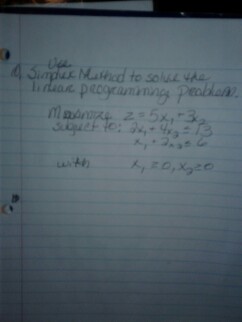 Use
Simplex Method to solve the
linear programming problem.
Maximize z = 5x₁ + 3x₂
subject to: 2x₁ + 4x₂ ≤ 13
x₁ + 2x₂ ≤ 6
with x₁ ≥ 0, x₂ ≥ 0